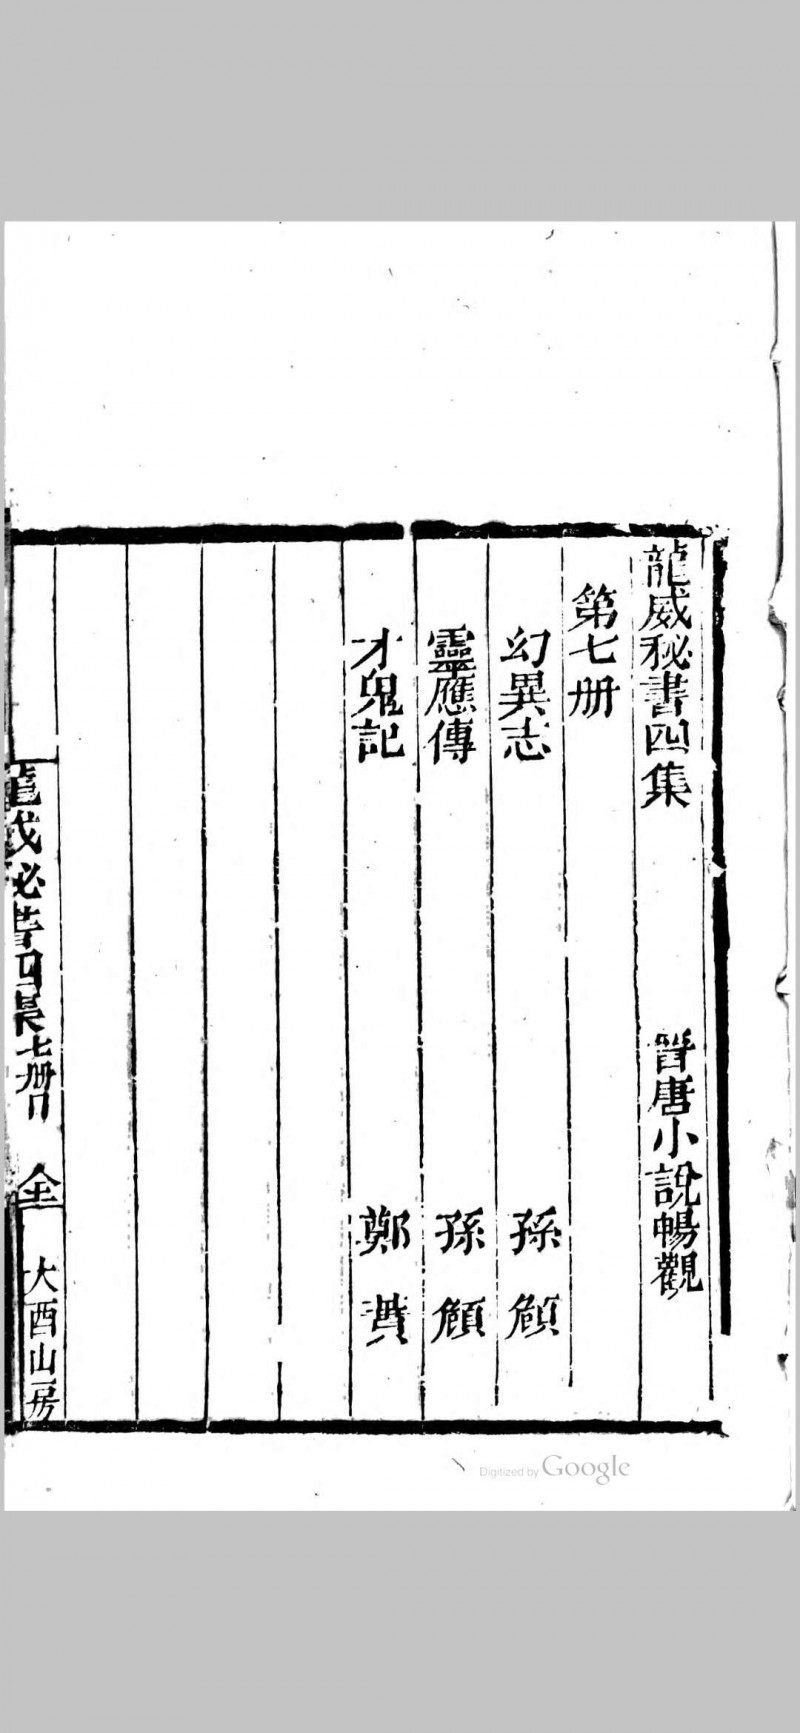 龍威秘書四集 晉唐小說暢觀
第七册
幻異志 孫頠
靈應傳 孫頠
才鬼記 鄭蕡
龍威秘書四集七册目 全 大酉山房
Digitized by Google